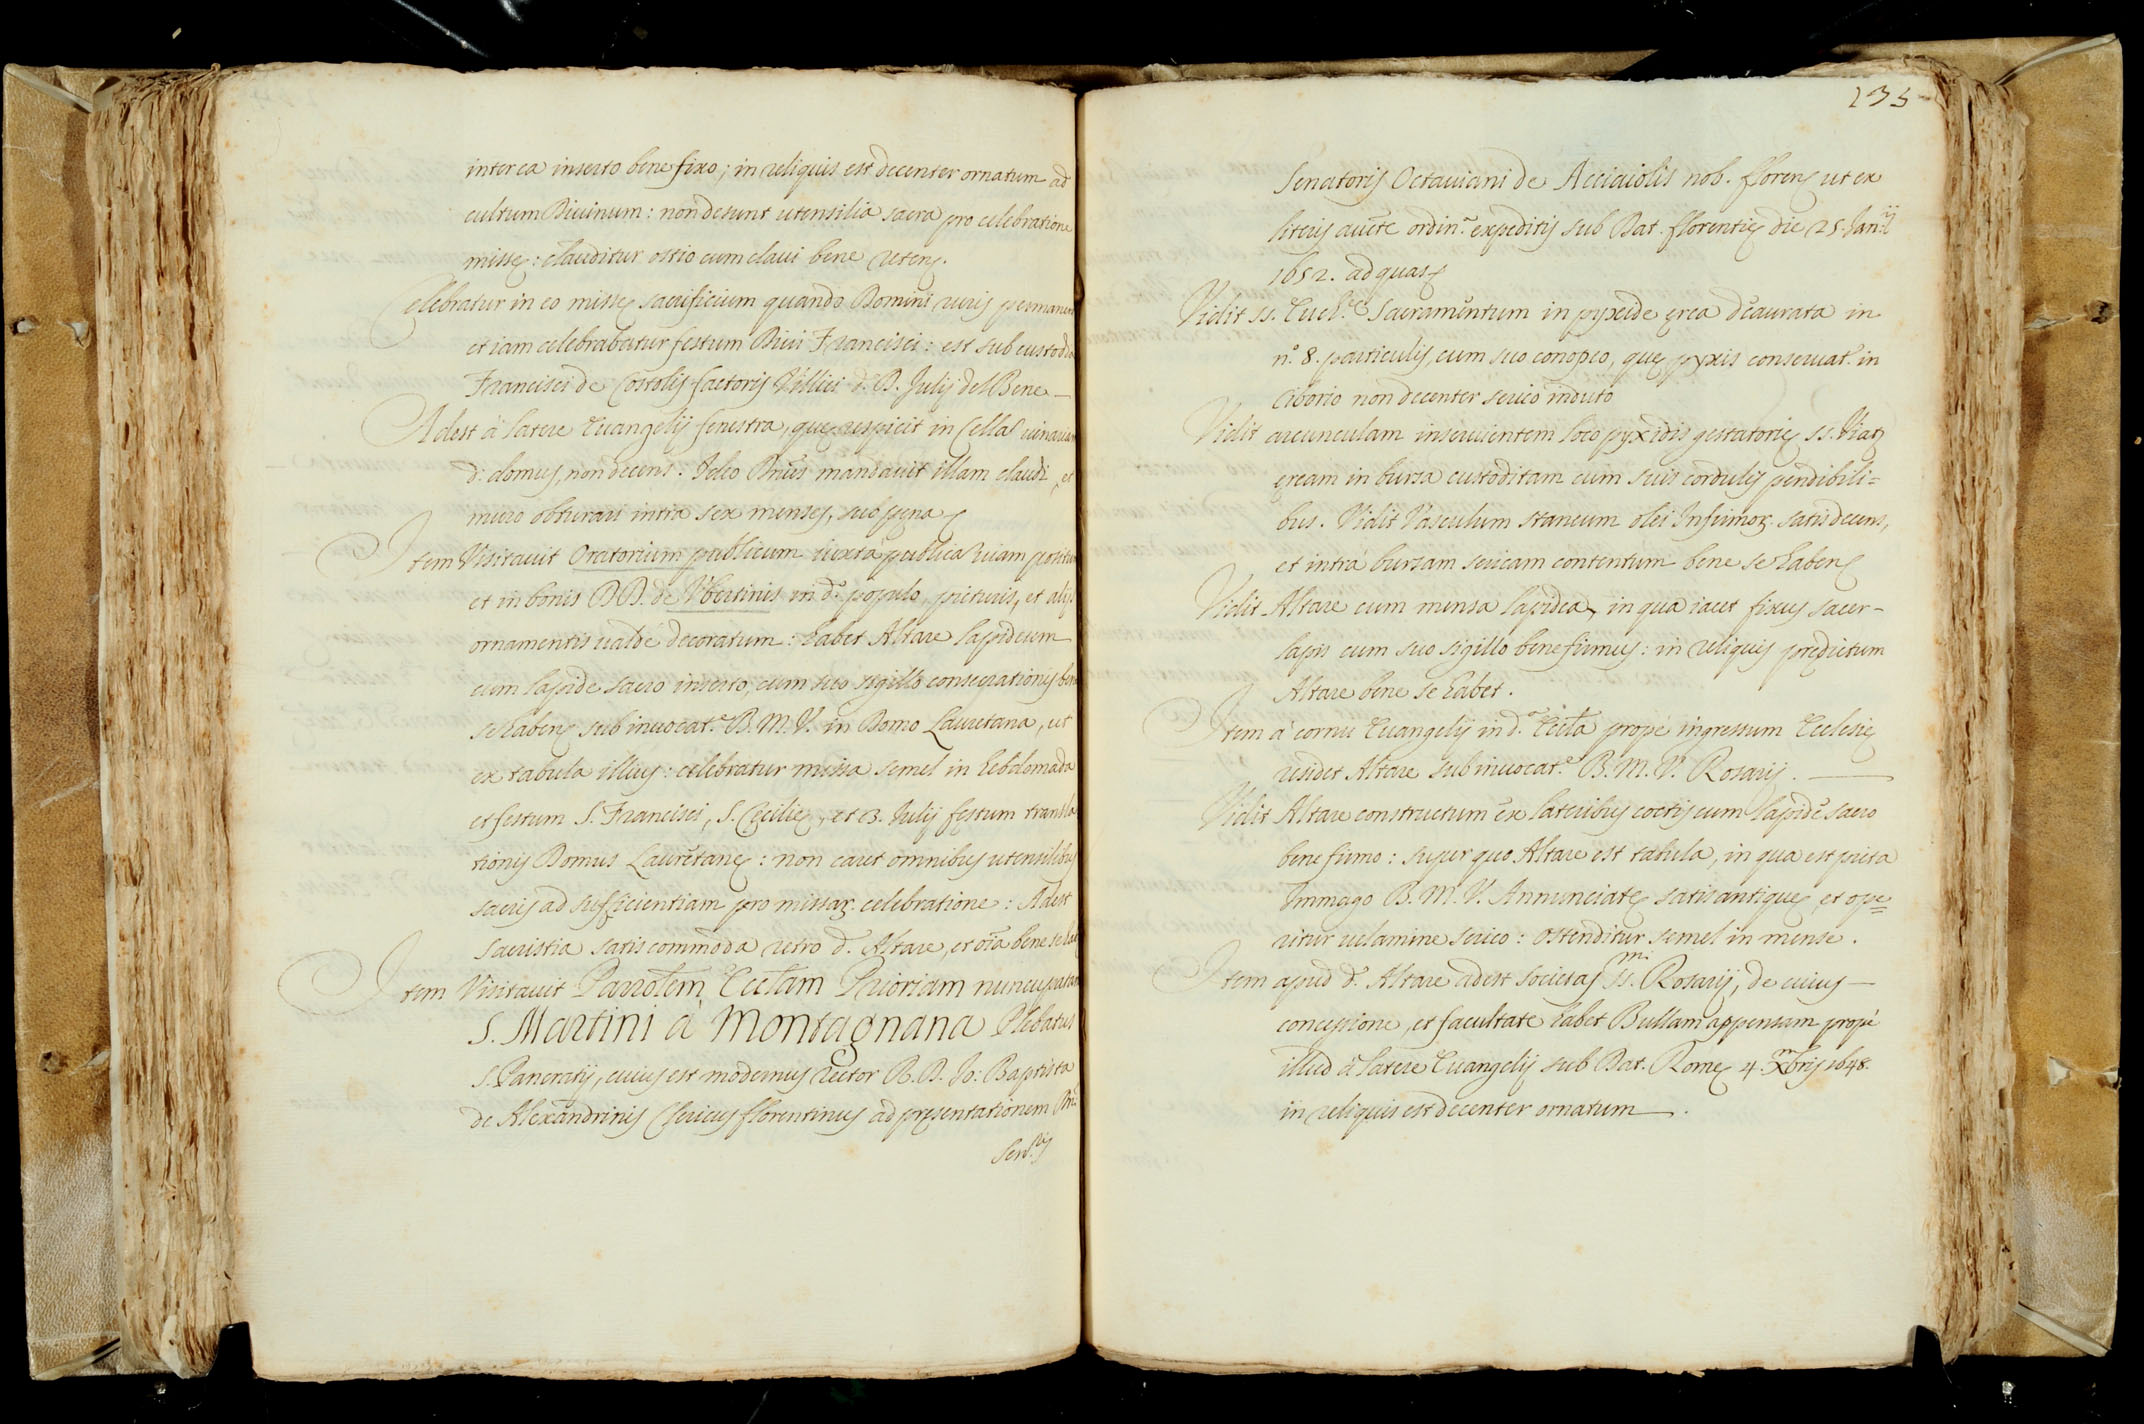 inter ea inserto bene fixo; in reliquis est decenter ornatum ad
cultum Divinum: non desunt utensilia sacra pro celebratione
missę: clauditur ostio cum clavi bene
Celebratur in eo missę sacrificium quando Domini ruris permanent
et iam celebrabatur festum Divi Francisci: est sub custodia
Francisci de Costolis factoris Villici d. D. Julij del Bene
Adest à latere Evangelij fenestra, quę respicit in Cellã vinariam
d: domus, non decens. Ideo mandavit illam claudi, et
muro obturari intra sex menses, sub pęna
Item Visitavit Oratorium publicum iuxta publicã viam positum
et in bonis DD. de Vbertinis in d.º populo, picturis, et alijs
ornamentis valdè decoratum: habet Altare lapideum
cum lapide sacro inserto, cum suo sigillo consecrationis bene
se habens sub invocat.e B. M. V. in Domo Lauretana, ut
ex tabula illius: celebratur missa semel in hebdomada
et festum S. Francisci, S. Cęcilię, et Julij festum transla
tionis Domus Lauretanę: non caret omnibus utensilibus
sacris ad sufficientiam pro missarꝫ celebratione: Adest
sacristia satis commoda retro d. Altare, et oĩa bene se
Item Visitavit Parrolem Eccl̃am Prioriam nuncupatam
S. Martini à Montagnana Plebatus
S. Pancratij, cuius est modernus rector R. D. Jo: Baptista
de Alexandrinis Clericus florentinus ad pręsentationem
135
Senatoris Octaviani de Acciaiolis nob. floren ut ex
literis ordin.ª expeditis sub Dat. florentię die 25. Jan.ij
1652. ad quas
Vidit SS. Euch.ę Sacramentum in pyxide ęrea deaurata in
n.º 8. particulis, cum suo conopeo, quę pyxis conservat.r in
Ciborio non decenter serico induto
Vidit arcunculam inservientem loco pyxidis gestatorię SS. Viatꝫ
ęream in bursa custoditam cum suis cordulis pendibili=
bus. Vidit Vasculum staneum olei Infirmorꝫ. satis decens,
et intra bursam sericam contentum bene se habens
Vidit Altare cum mensa lapidea, in qua iacet fixus sacer
lapis cum suo sigillo bene firmus: in reliquis prędictum
Altare bene se habet.
Item à cornu Evangelij in d.ª Eccl̃a propè ingressum Ecclesię
residet Altare sub invocat.e B. M. V. Rosarij.
Vidit Altare constructum ex lateribus coctis cum lapide sacro
bene firmo: super quo Altare est tabula, in qua est picta
Immago B. M. V. Annunciatę satis antiquę, et ope=
ritur velamine serico: ostenditur semel in mense.
Item apud d. Altare adest Societas SS.mi Rosarij, de cuius
concessione, et facultate habet Bullam appensam propè
illud à latere Evangelij sub Dat. Romę 4. Xmbris 1648.
in reliquis est decenter ornatum.